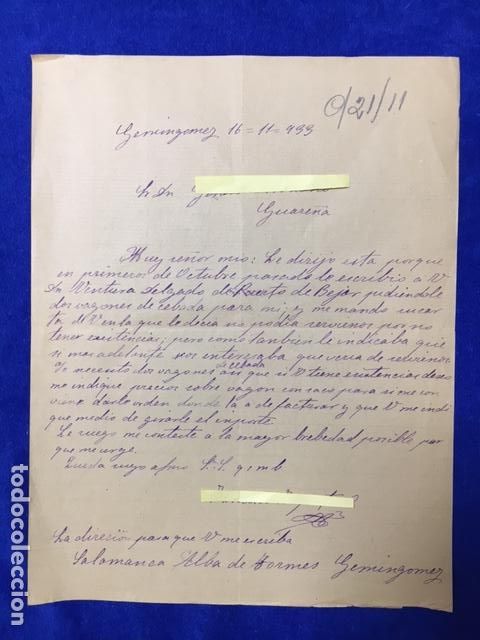 O/21/11
Gemingomez 16=11=933
Sr Dn
Guareña
Muy señor mio: Le dirijo esta porque
en primeros de Octubre pasado escribio a V
Dn Ventura Delgado de Puerto de Bejar pidiendole
dos vagones de cebada para mi, y me mando su car
ta de V en la que le decia no podia servirnos por no
tener existencias; pero como tambien le indicaba que
si mas adelante nos interesaba que veria de
Yo necesito dos vagones de cebada asi que si V tiene existencias deseo
me indique precios sobre vagon con saco para si me con
viene darle orden donde la a de facturar y que V me indi
que medio de girarle el importe.
Le ruego me conteste a la mayor brebedad posible por
que me urge.
Queda suyo afmo S.S. q e m b
La direción para que V me escriba
Salamanca Alba de Tormes Gemingomez
todocoleccion